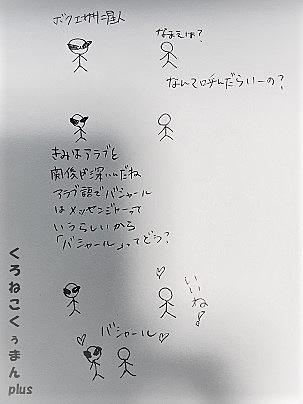 ボクエササニ星人
なまえは?
なんて呼んだらいーの?
きみはアラブと
関係が深いんだね
アラブ語でバシャール
はメッセンジャーって
いうらしいから
「バシャール」ってどう?
いいね♪
バシャール
くろねこくぅまん
plus